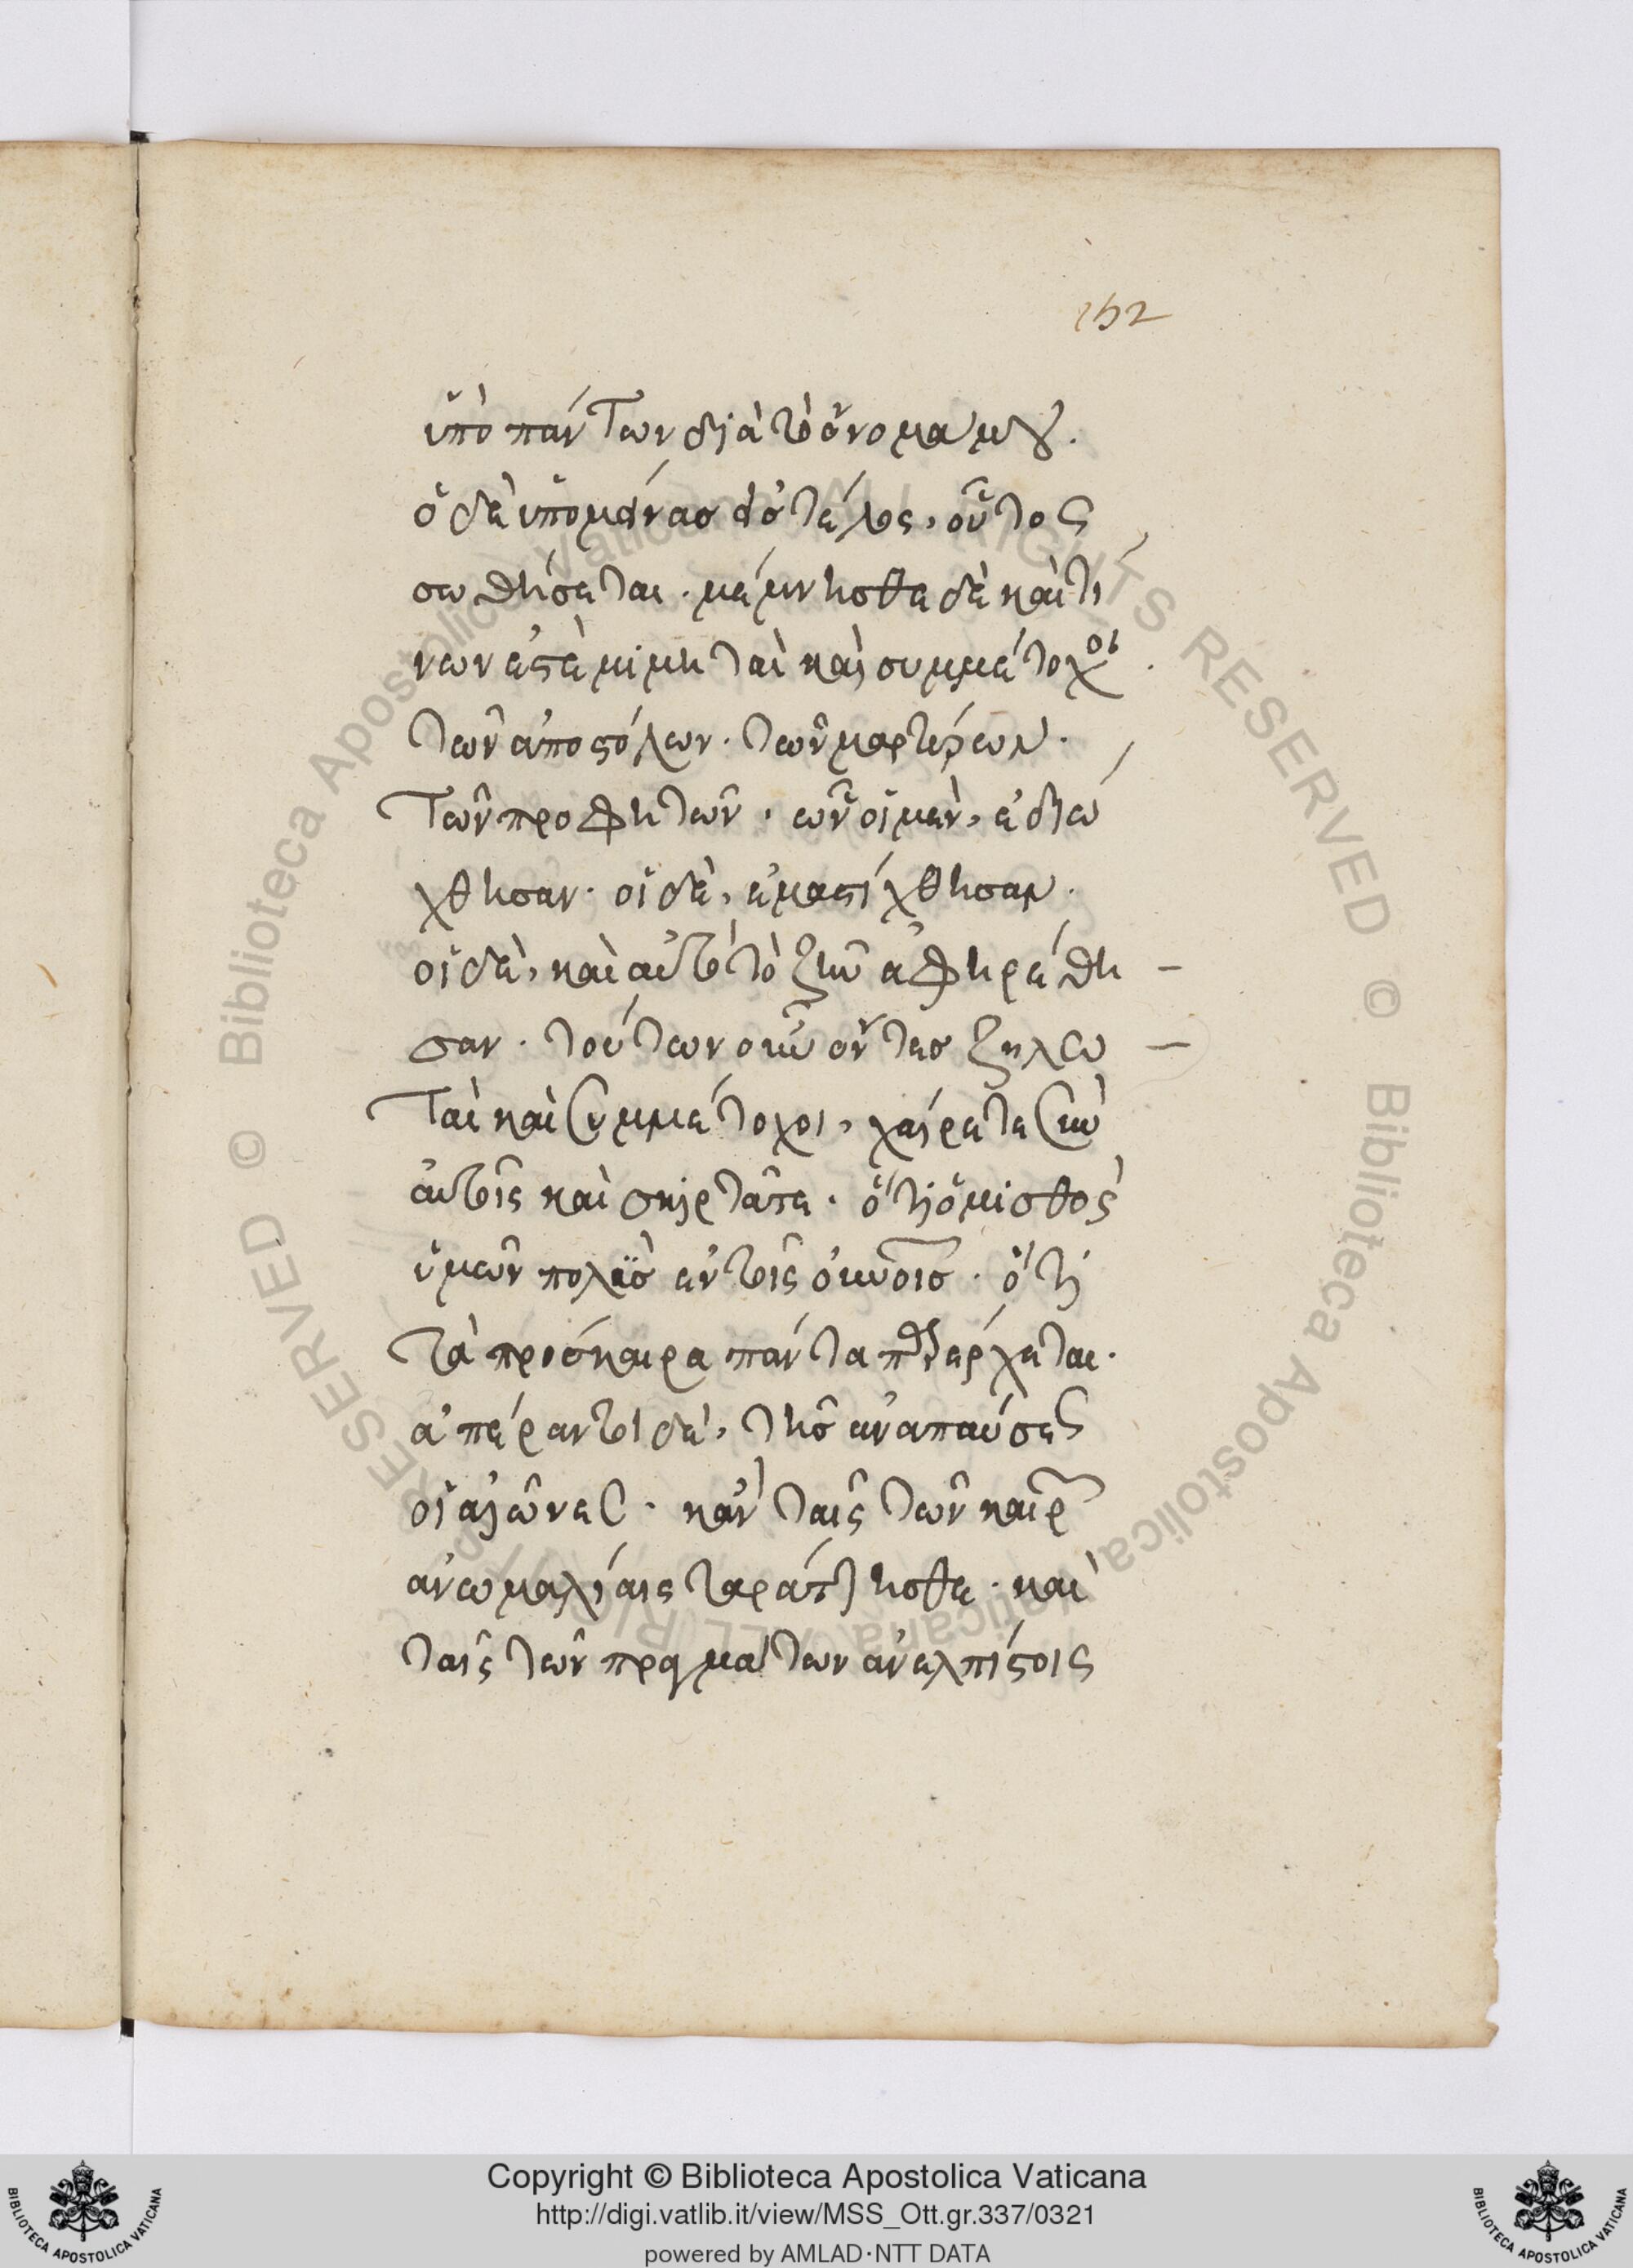 152
ὑπὸ πάντων διὰ τὸ ὄνομα μου.
ὁ δὲ ὑπομείνας εἰς τέλος, οὗτος
σωθήσεται. μέμνησθε δὲ καὶ τί
νων ἐστὲ μιμηταὶ καὶ συμμέτοχοι.
τῶν ἀποστόλων. τῶν μαρτύρων.
τῶν προφητῶν. ὧν οἱ μὲν, ἐδιώ
χθησαν. οἱ δὲ, ἐμαστίχθησαν.
οἱ δὲ, καὶ αὐτὸ τὸ ζῆν ἀφηρέθη –
σαν. τούτων οὖν ὄντες ζηλω –
ταὶ καὶ συμμέτοχοι, χαίρετε σὺν
αὐτοῖς καὶ σκιρτᾶτε. ὅτι ὁ μισθὸς
ὑμῶν πολὺς ἐν τοῖς οὐνοῖς. ὅτι
τὰ πρόσκαιρα πάντα παρέρχεται.
ἀπέραντοι δὲ, τῆς ἀναπαύσεως
οἱ αἰῶνες. κἂν ταῖς τῶν καιρῶν
ἀνωμαλίαις ταράττησθε. καὶ
ταῖς τῶν πραγμάτων ἀνελπίστοις
Copyright © Biblioteca Apostolica Vaticana
http://digi.vatlib.it/view/MSS_Ott.gr.337/0321
powered by AMLAD·NTT DATA
BIBLIOTECA APOSTOLICA VATICANA
BIBLIOTECA APOSTOLICA VATICANA
© Biblioteca Apostolica Vaticana ALL RIGHTS RESERVED
© Biblioteca Apostolica Vaticana ALL RIGHTS RESERVED